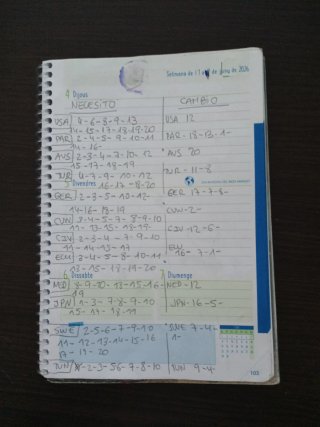 Setmana de l' 1 al de juny de 2026
4 Dijous
NECESITO CAMBIO
USA 4-6-8-9-13 USA 12
14-15-17-18-19-20
PAR 2-4-5-9-10-11 PAR-18-13-1-
14-16-
AUS 2-3-4-7-10-12 AUS 20
15-17-18-19
TUR 4-7-9-10-12 TUR-11-8
5 Divendres 16-17-18-20
GER 2-3-5-10-12- GER 17-7-8-
14-16-18-19
3-4-5-7-8-9-10 -2-
11-13-15-18-19-
CIV 2-3-4-7-9-10 CIV 12-6-
11-14-15-17
ECU 3-4-5-8-10-11 16-7-1-
13-15-18-19-20
6 Dissabte 7 Diumenge
NED 8-9-10-13-15-16- NED-12
19
JPN 1-3-7-8-9-10 JPN-16-5-
15-17-18-19
SWE 2-5-6-7-9-10 SWE 7-4-
11-12-13-14-15-16 1-
17-19-20
TUN 2-3-5-6-7-8-10 TUN 9-4-
103